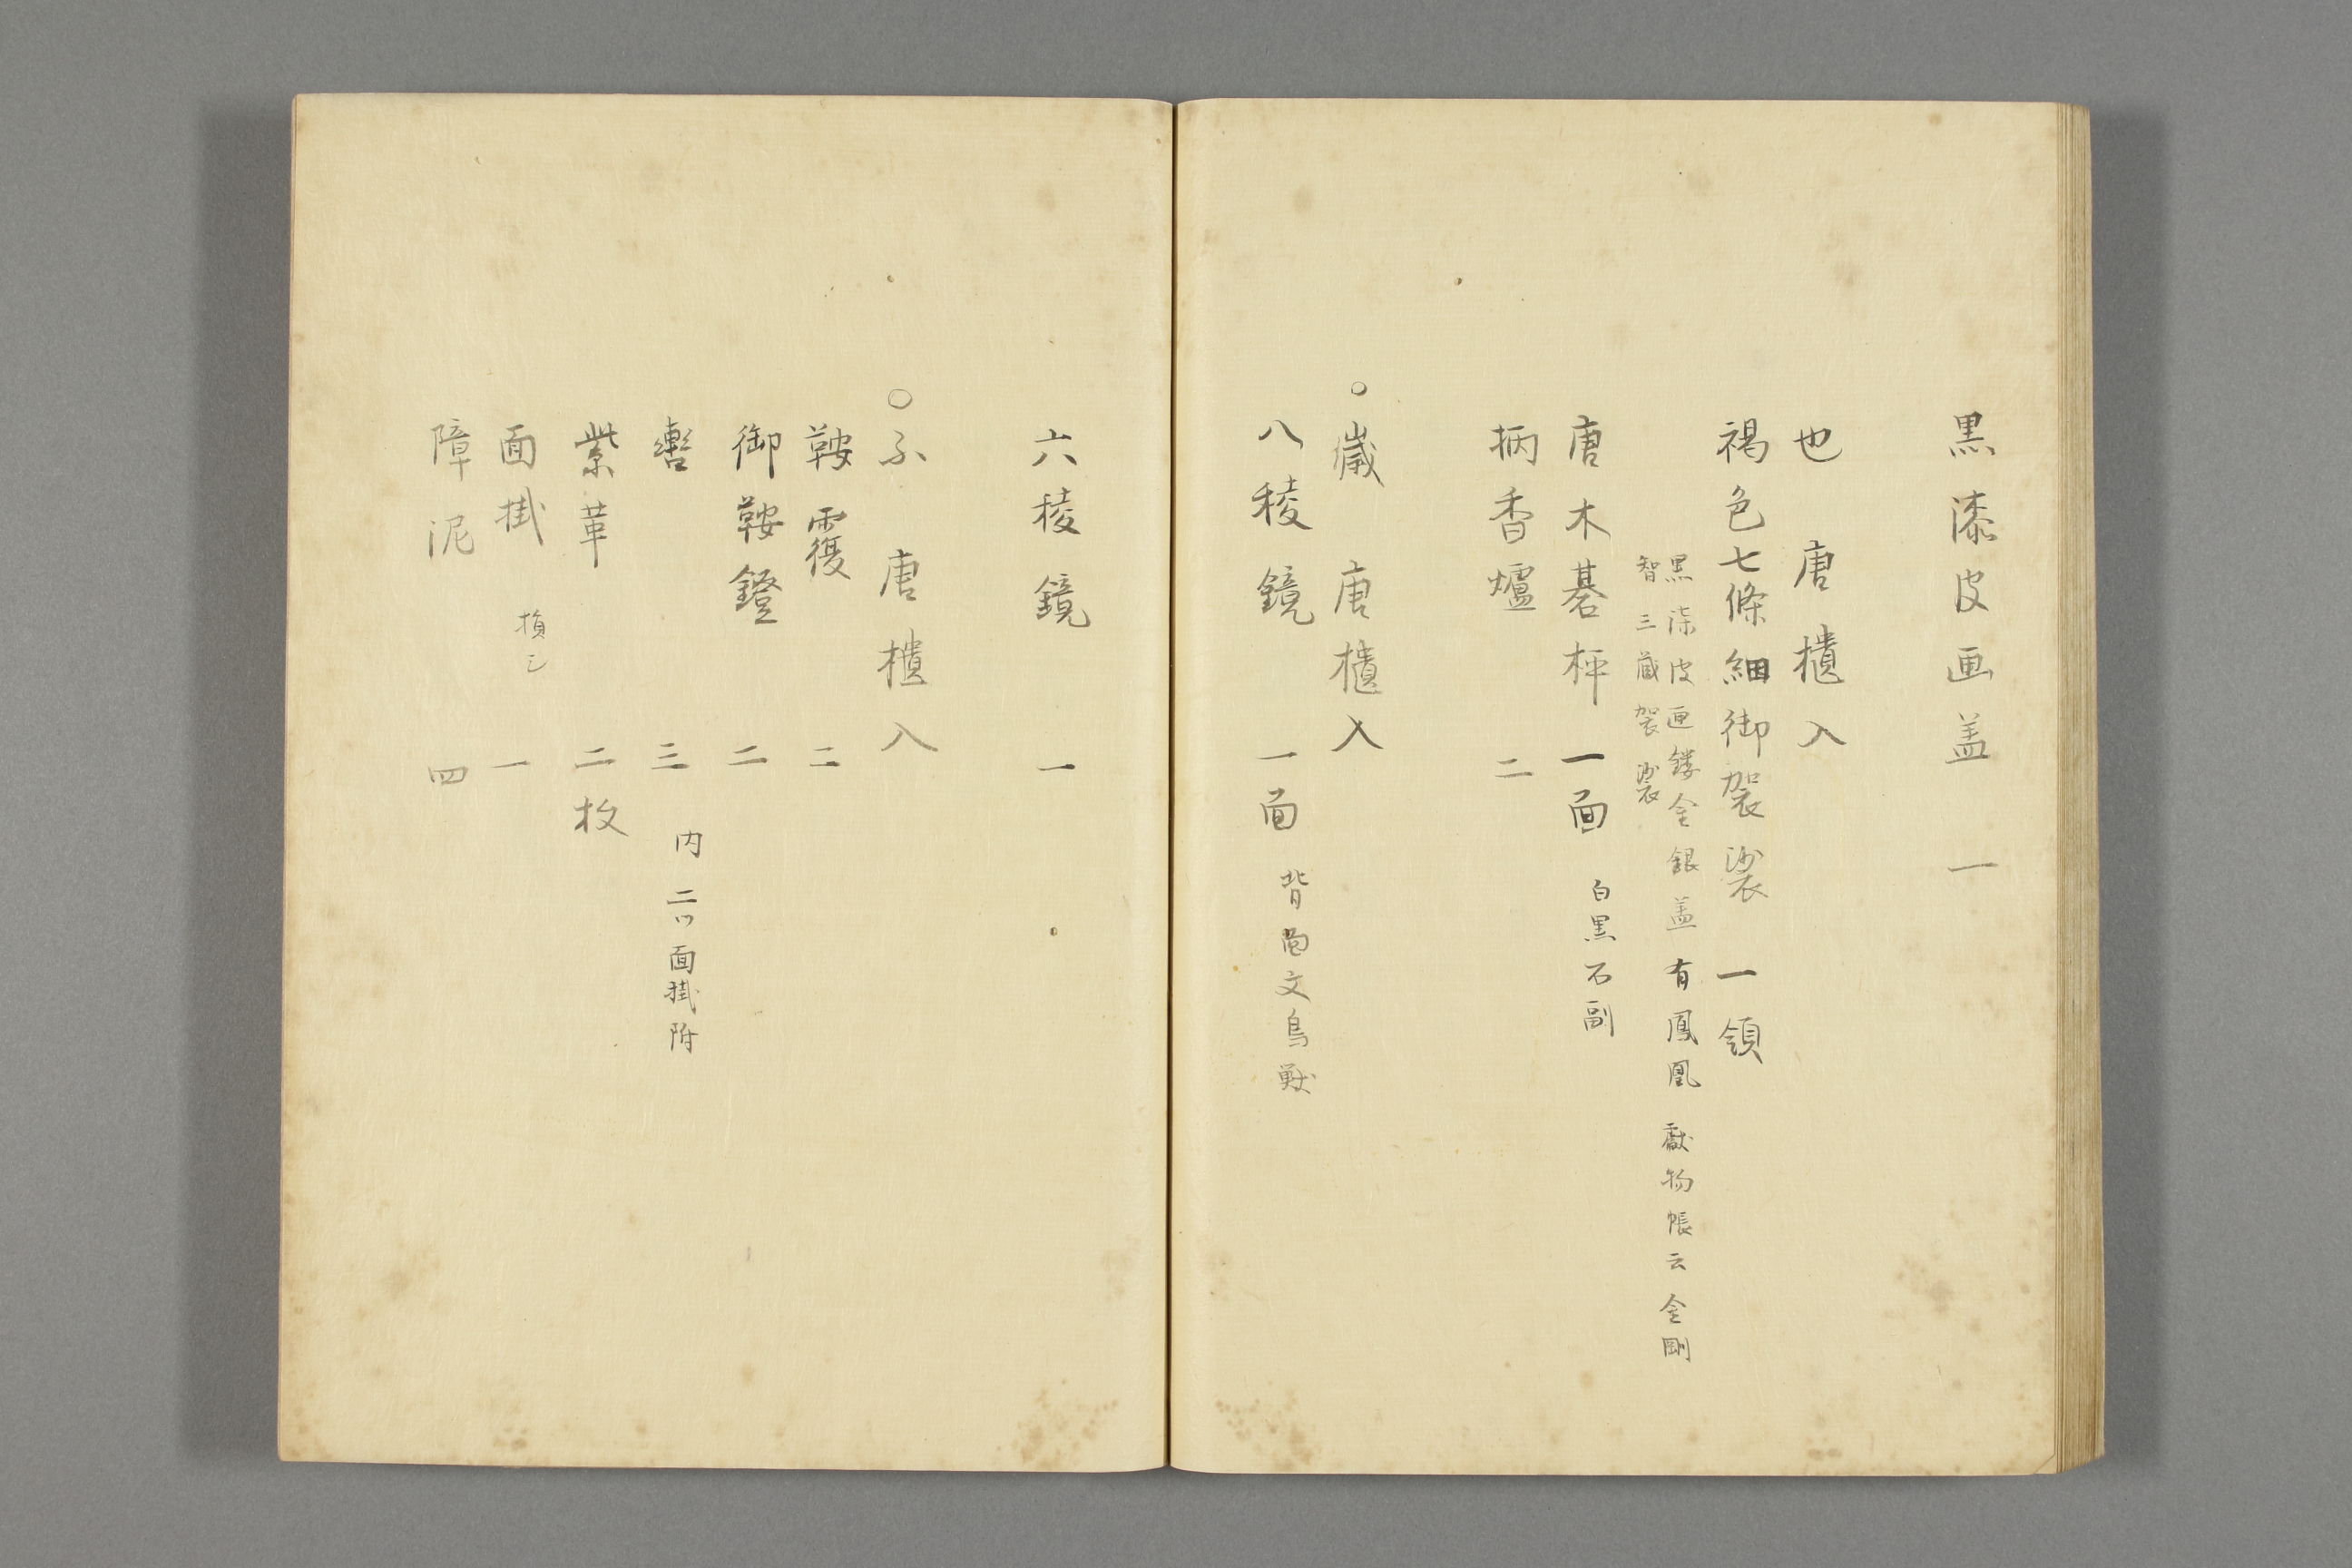 黒漆皮画盖 一
也 唐櫃入
褐色七條細御袈裟 一領
黒漆皮画鏤金銀盖有鳳凰 献物帳云金剛
智三蔵袈裟
唐木碁枰 一面 白黒石副
柄香爐 二
○歳 唐櫃入
八稜鏡 一面 背面文鳥獣
六稜鏡 一
○ふ 唐櫃入
鞍覆 二
御鞍鐙 二
轡 三 内二ツ面掛附
紫革 二枚
面掛 損シ 一
障泥 四